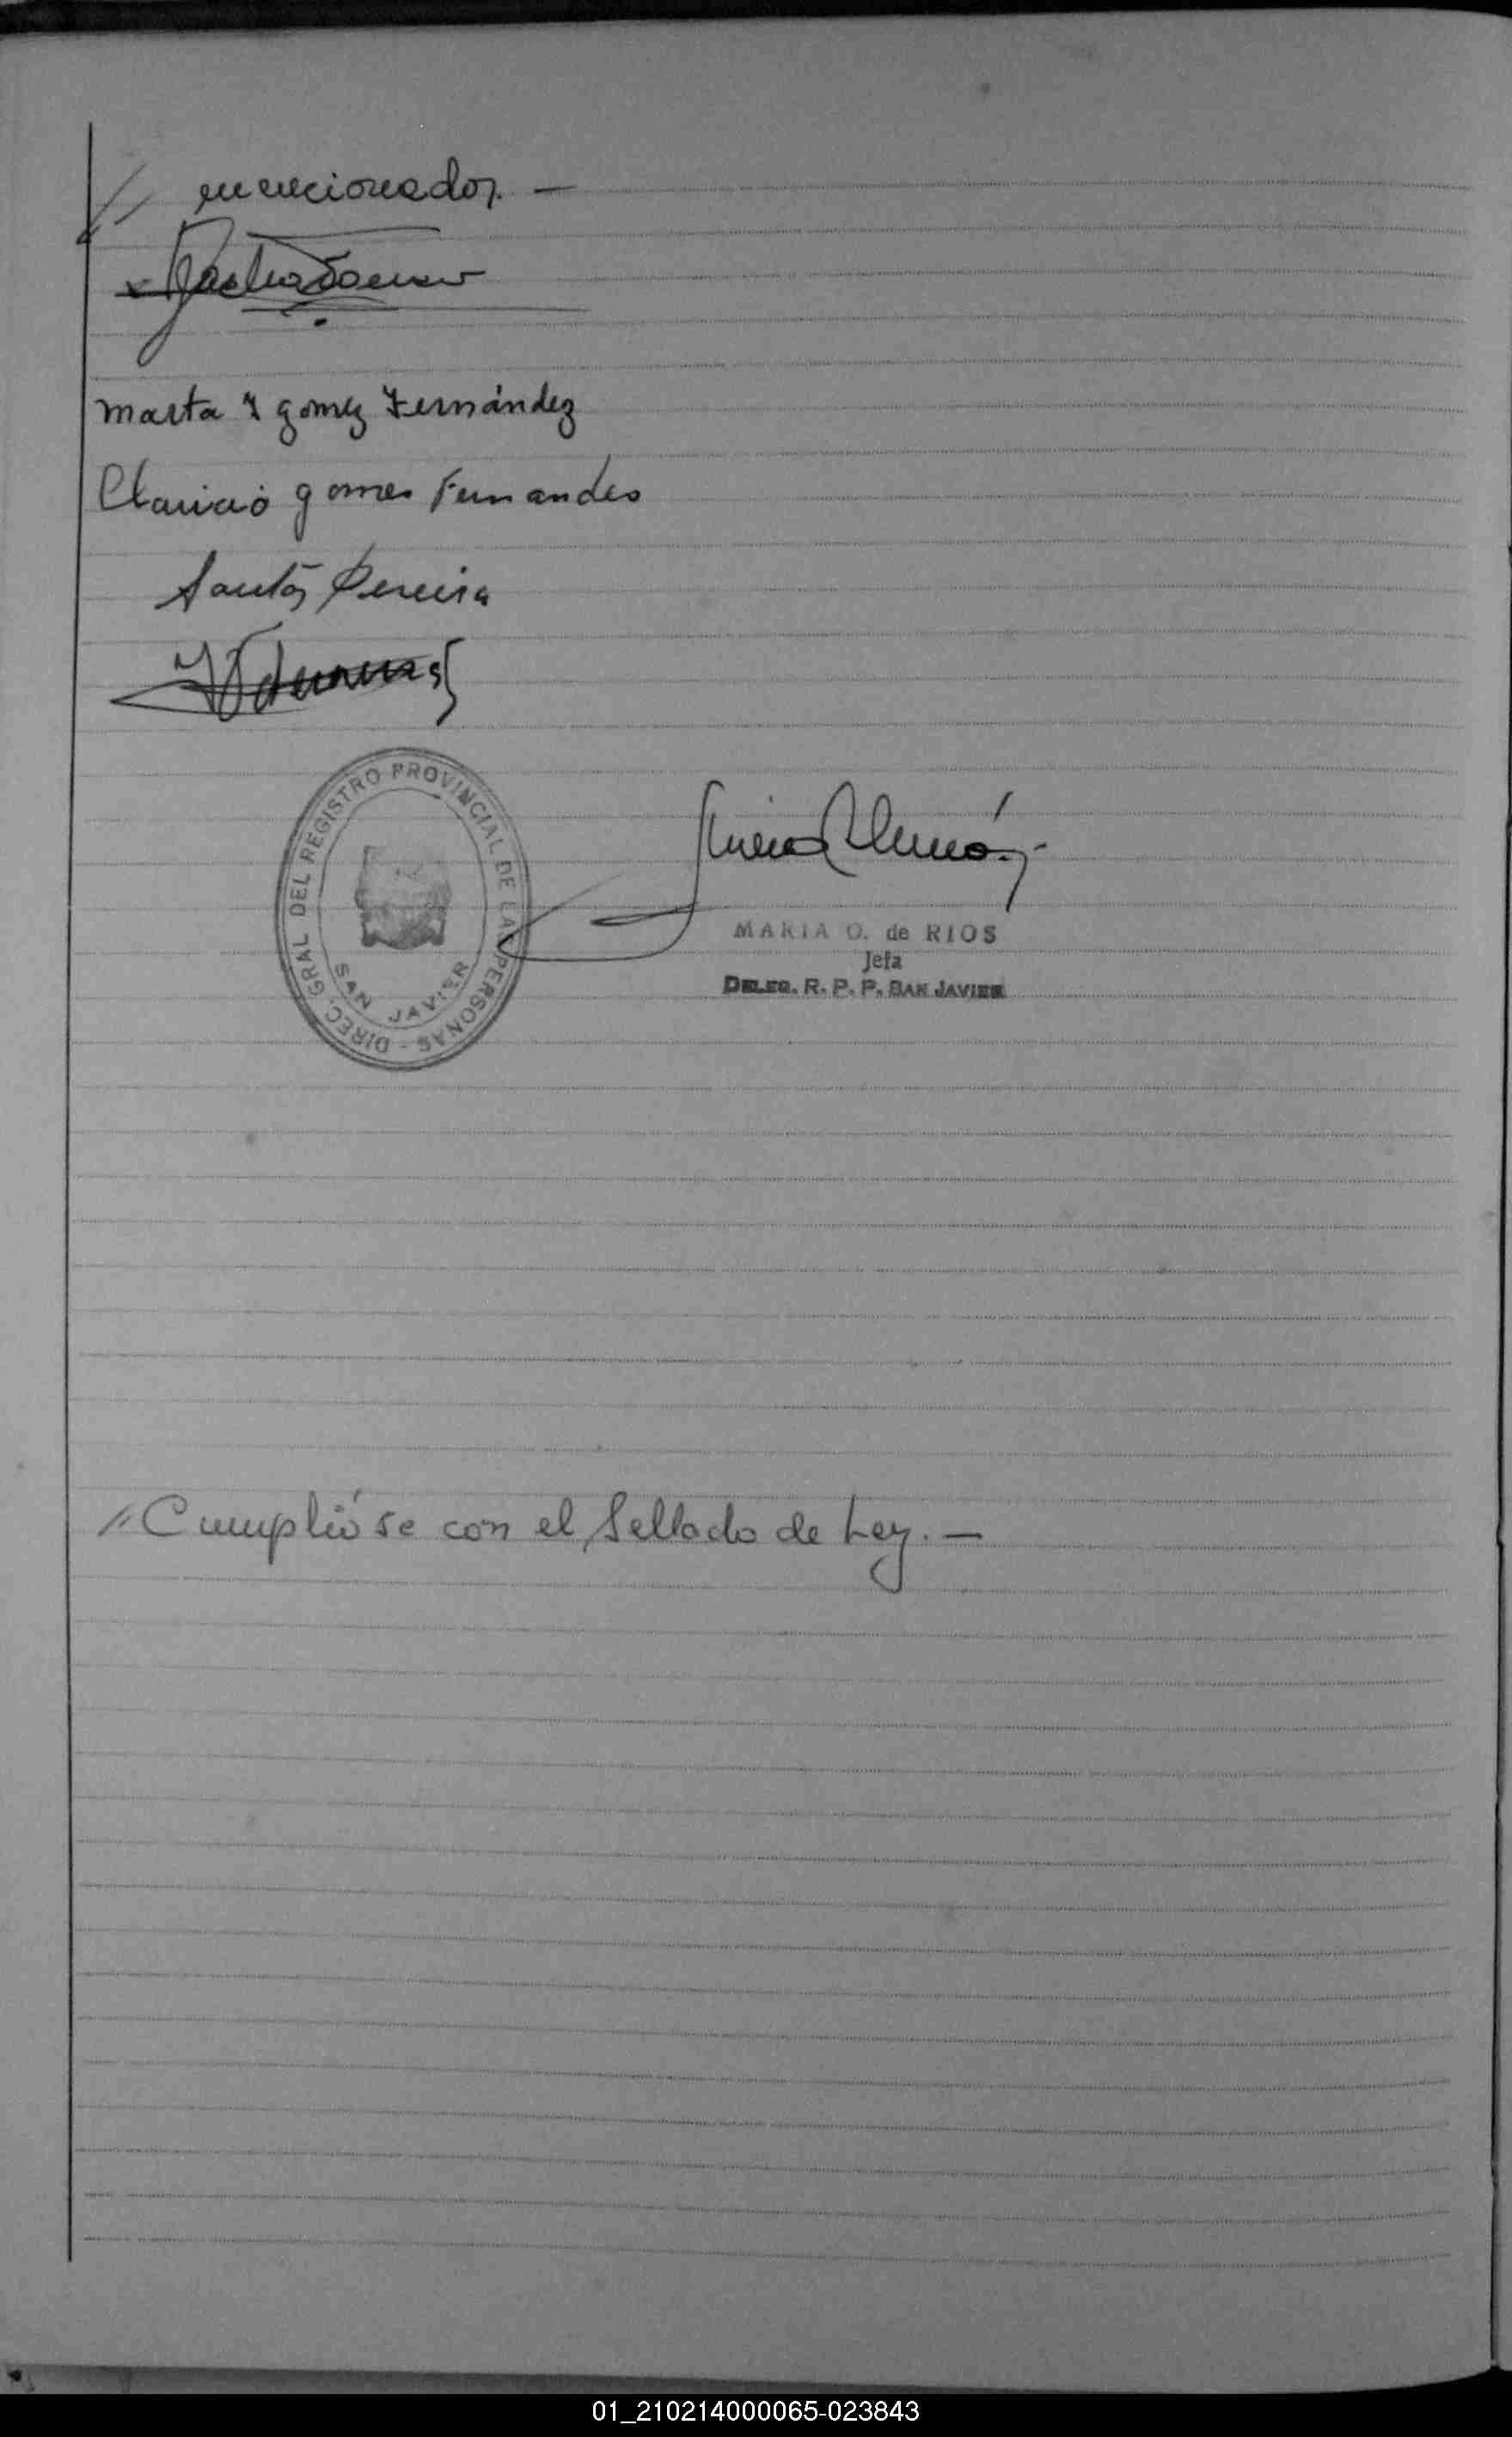 // mencionados. —
Marta Y gomez Fernández
gomes Fernandes
Santos Pereira
DIREC. GRAL DEL REGISTRO PROVINCIAL DE LAS PERSONAS -
SAN JAVIER
MARIA O. de RIOS
Jefa
DELEG. R. P. P. SAN JAVIER
// Cumplióse con el Sellado de Ley. —
01_210214000065-023843